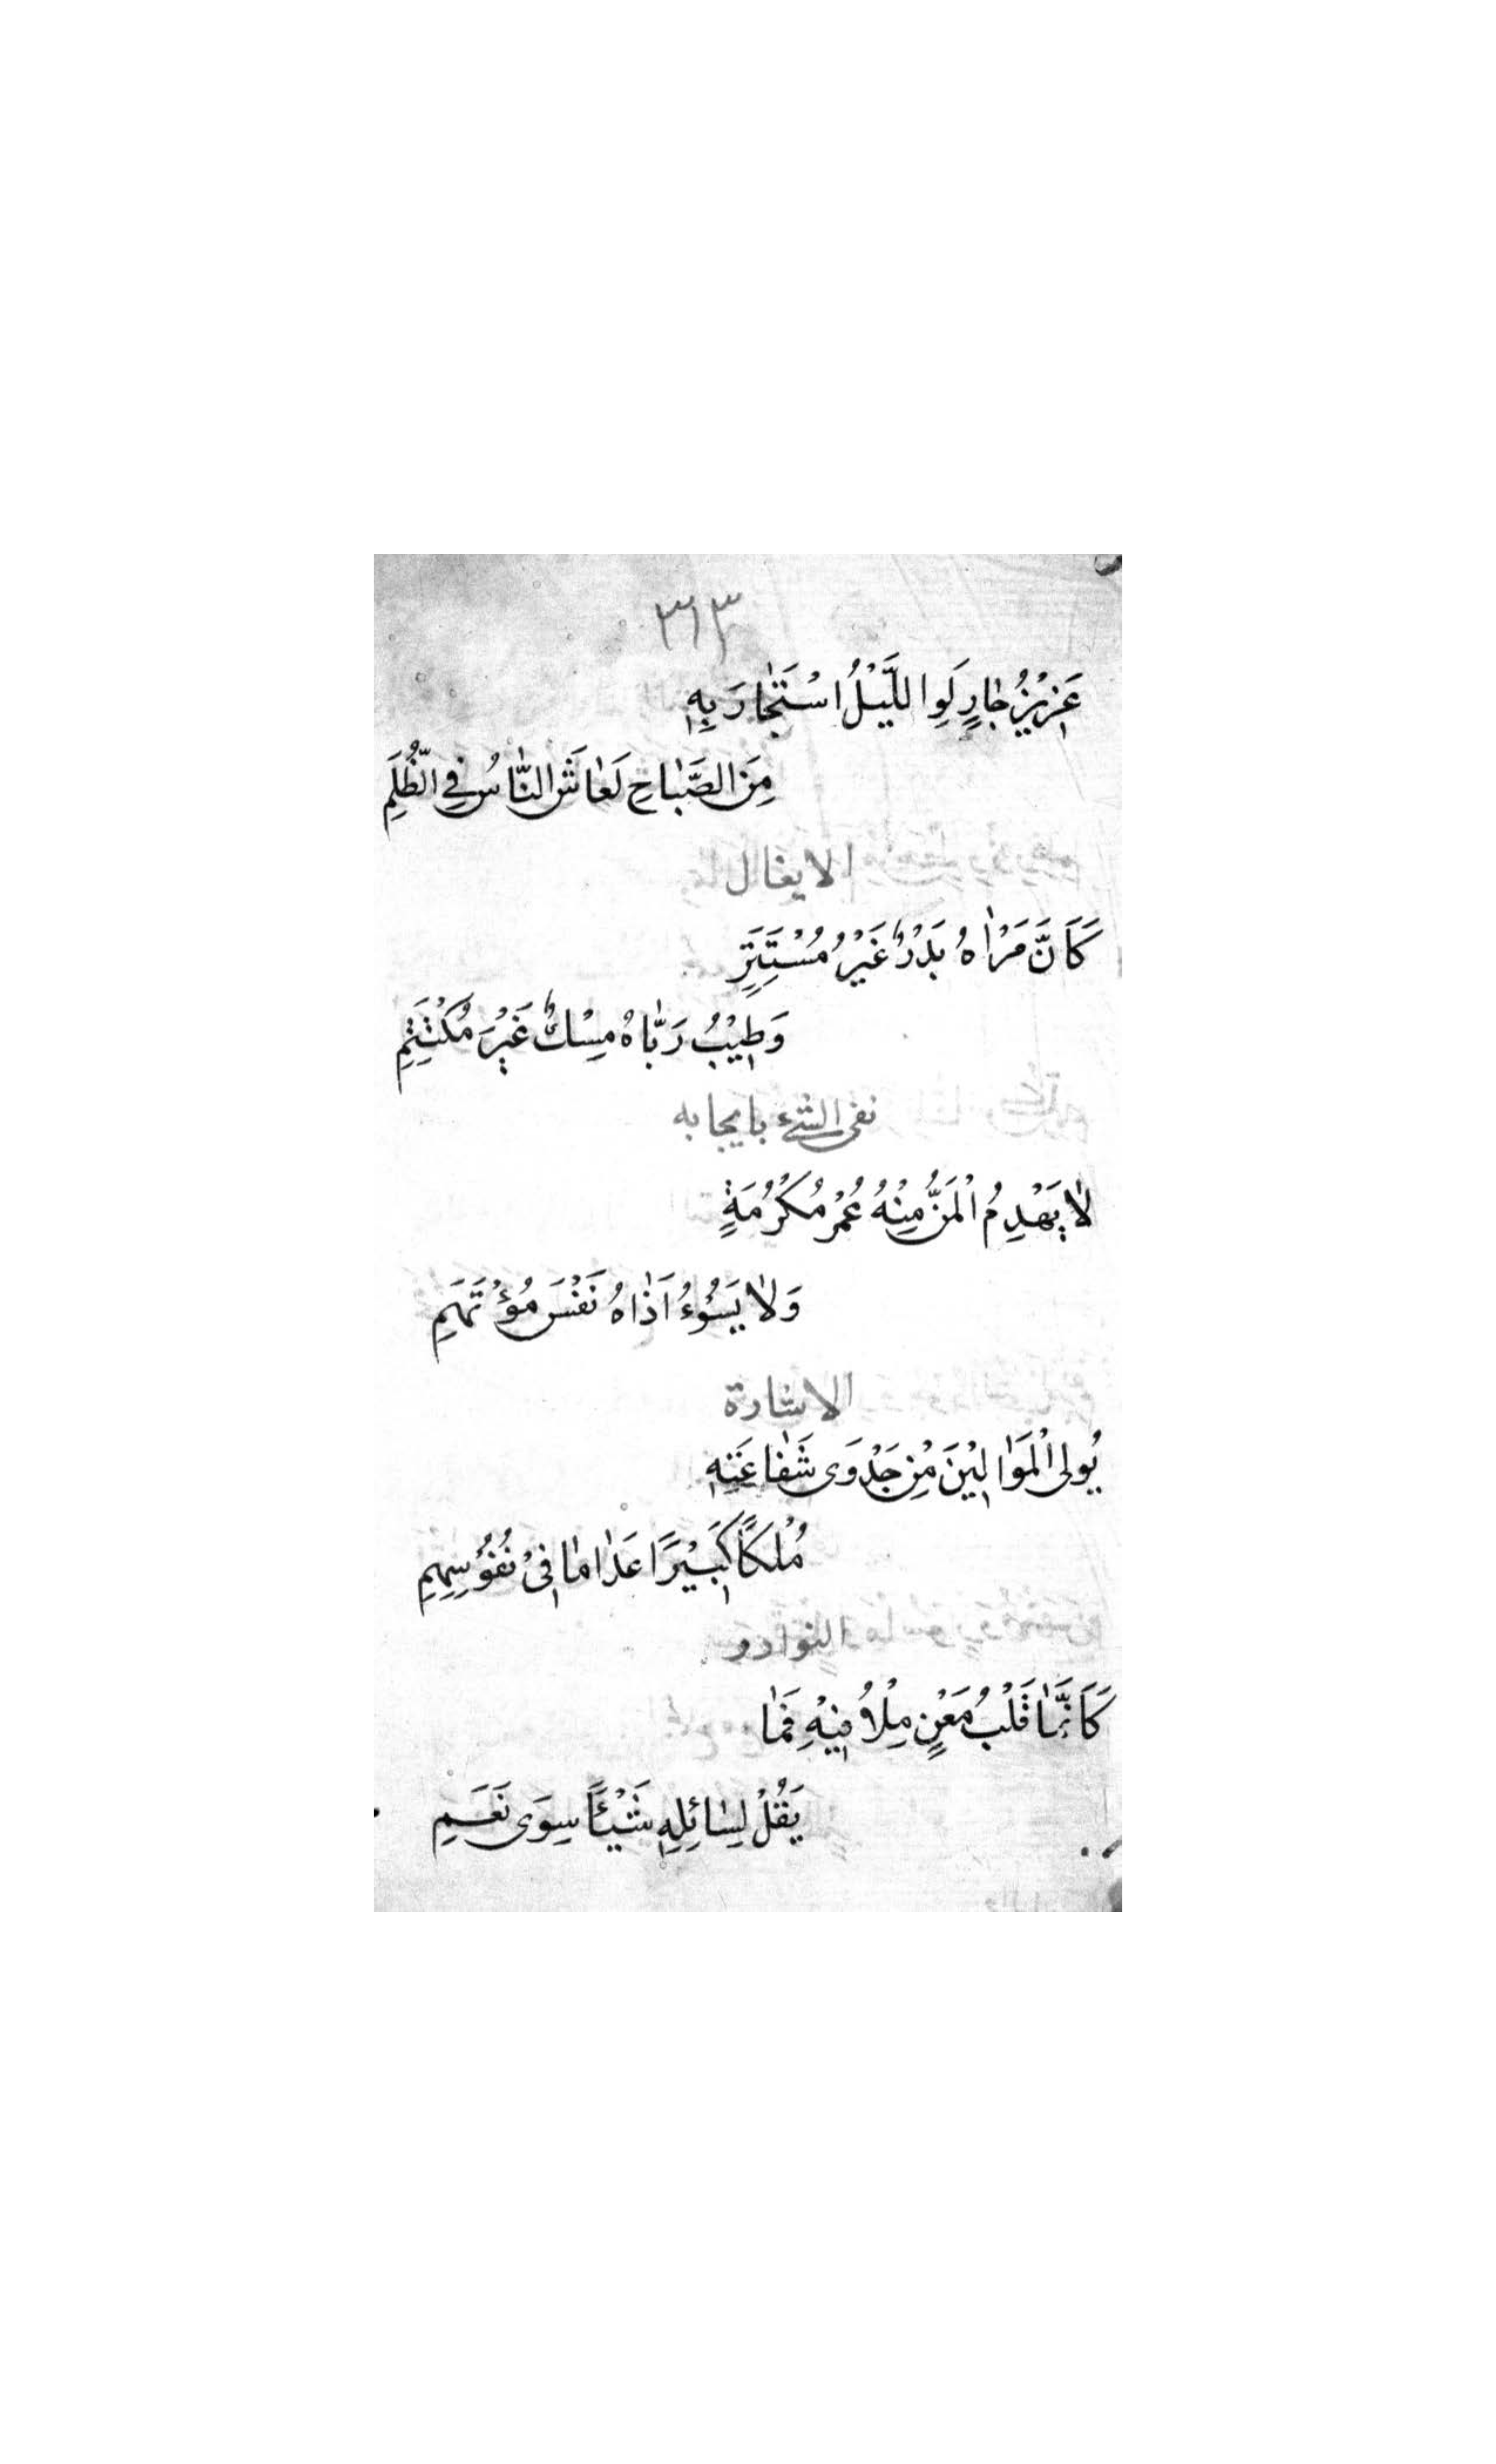 ٣١٣
عَزِيْزُ جَارٍ لَوِ اللَّيْلُ اسْتَجَارَ بِهِ
مِنَ الصَّبَاحِ لَعَاشَ النَّاسُ فِي الظُّلَمِ
الايغال
كَأَنَّ مَرْاٰهُ بَدْرٌ غَيْرُ مُسْتَتِرٍ
وَطِيْبُ رَيَّاهُ مِسْكٌ غَيْرَ مُكْتَتِمِ
نفى الشئ بايجابه
لَا يَهْدِمُ الْمَنُّ مِنْهُ عُمْرُ مُكْرُمَةٍ
وَلَا يَسُوْءُ اَذَاهُ نَفْسَ مُؤْتَهَمِ
الاشارة
يُولِى الْمَوَالِيْنَ مِنْ جَدْوَى شَفَاعَتِهِ
مُلْكًا كَبِيْرًا عَدَا مَا فِىْ نُفُوْسِهِمِ
النوادر
كَأَنَّمَا قَلْبُ مَعْنٍ مِلْأُ فِيْهِ فَمَا
يَقُلْ لِسَائِلِهِ شَيْئًا سِوَى نَعَمِ